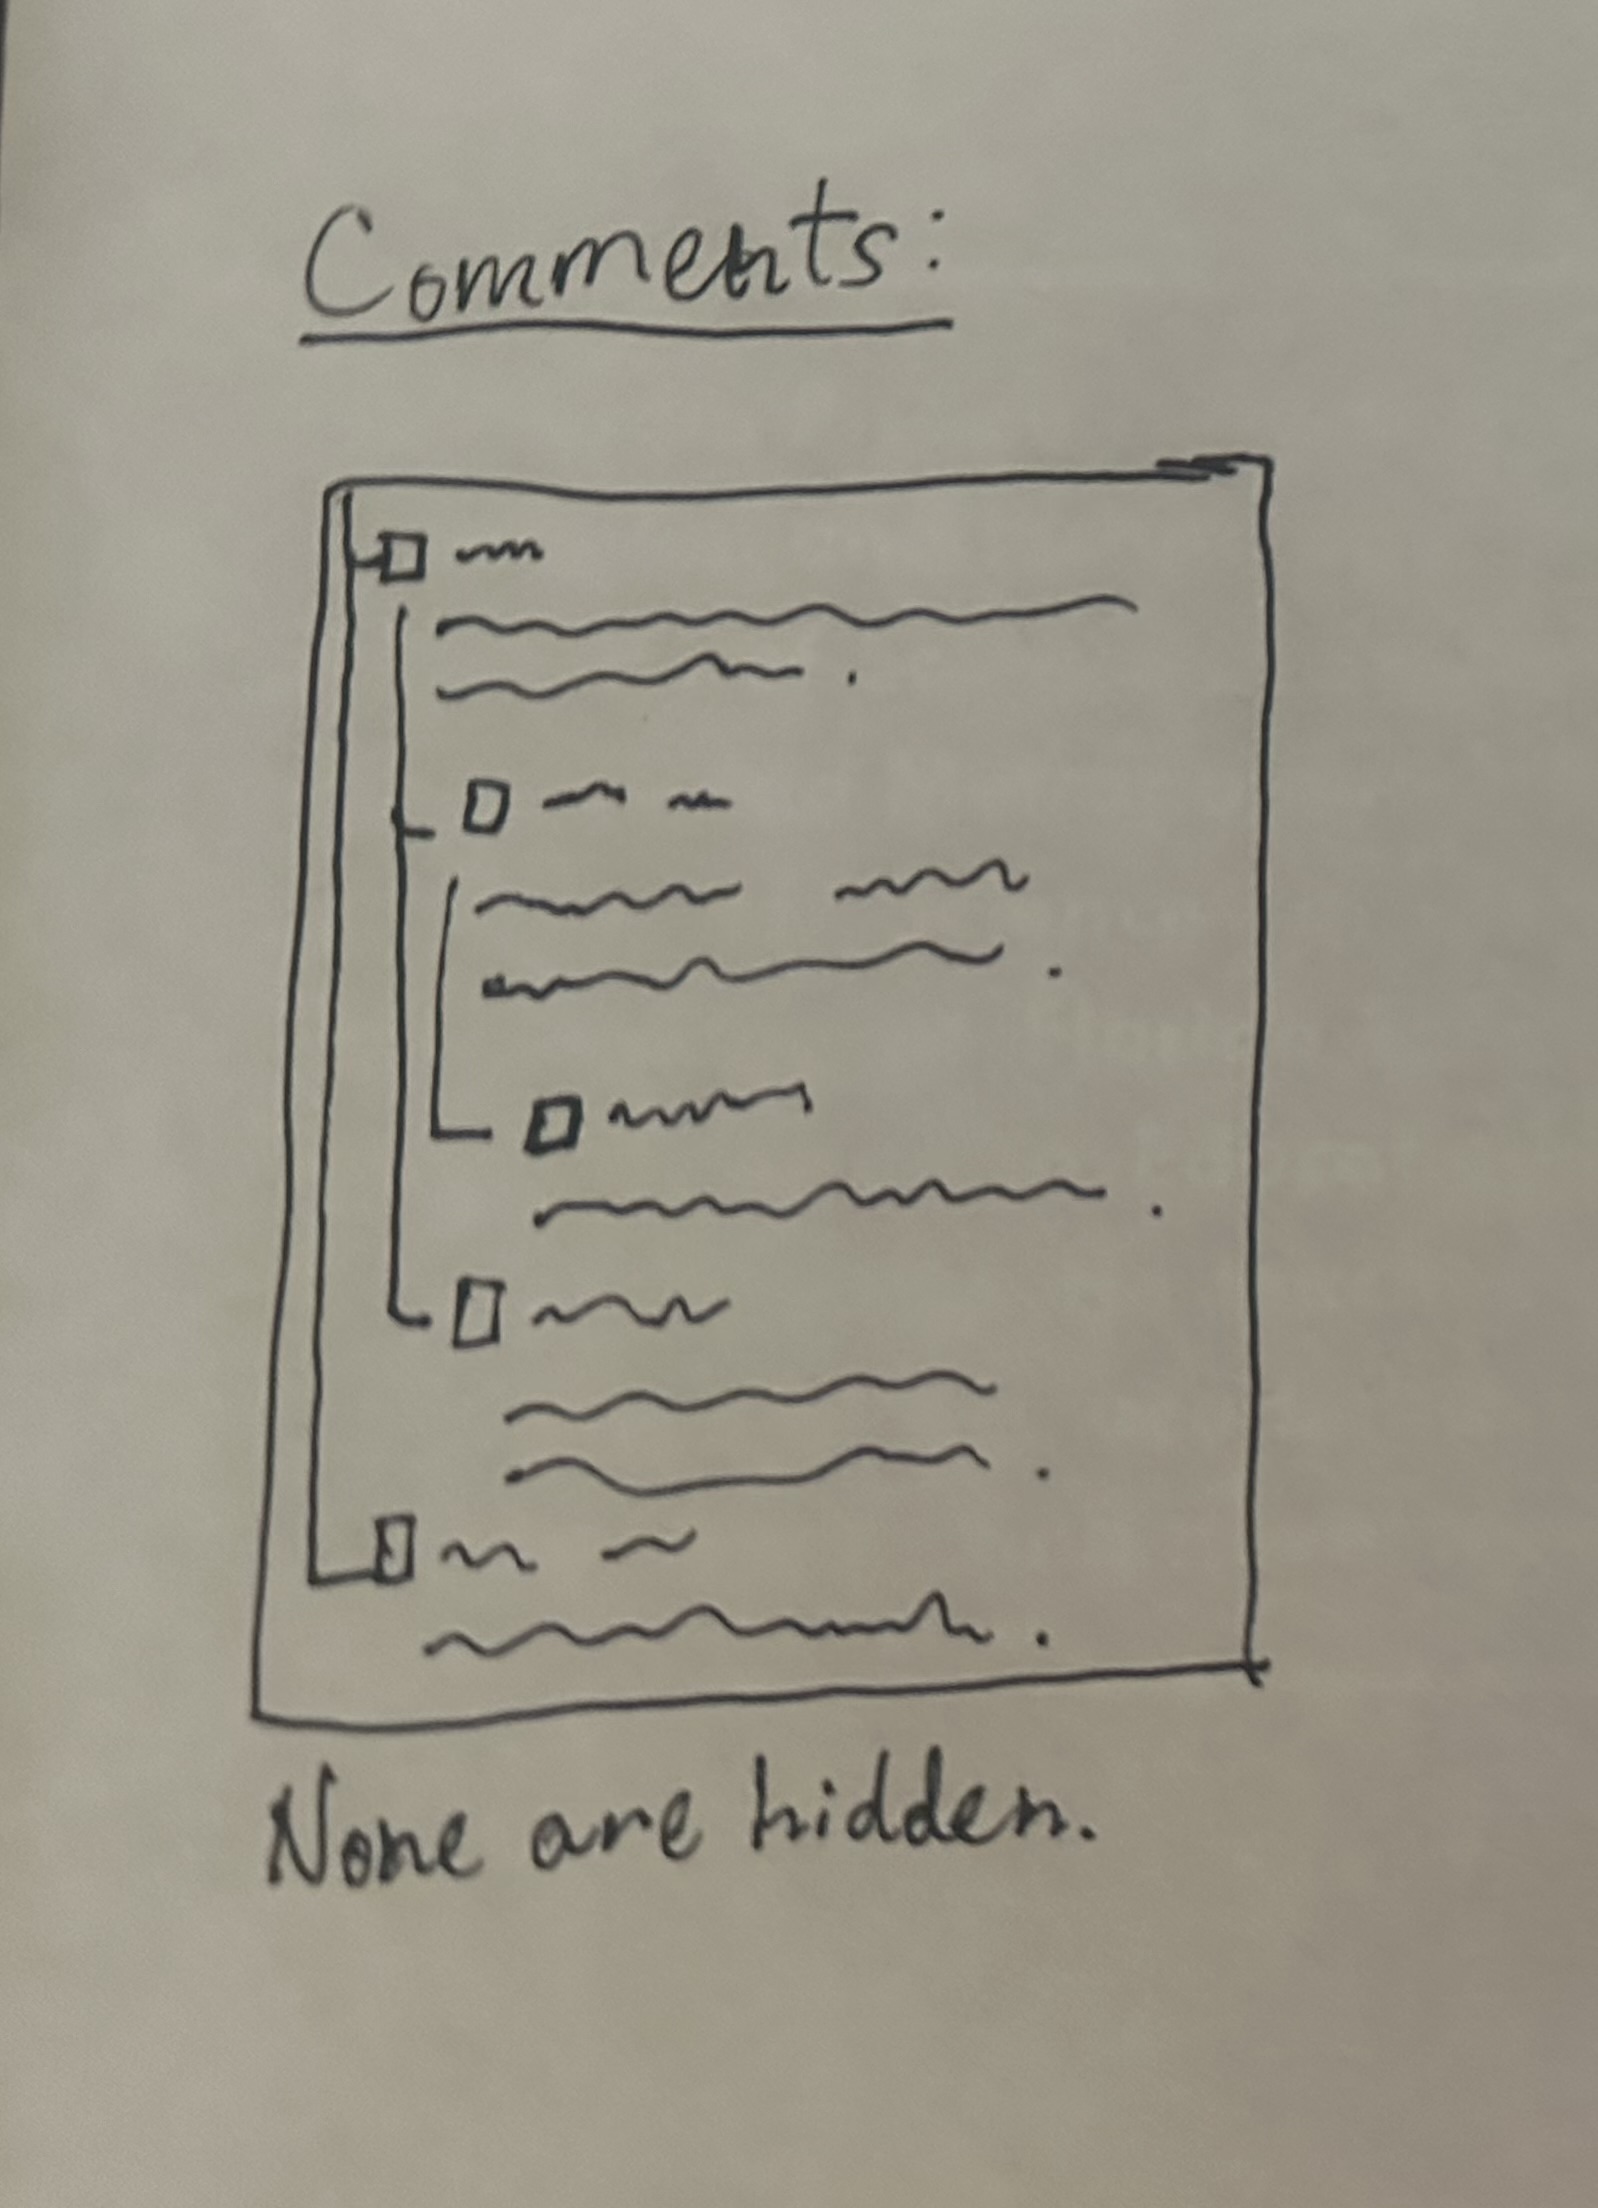 Comments:
None are hidden.